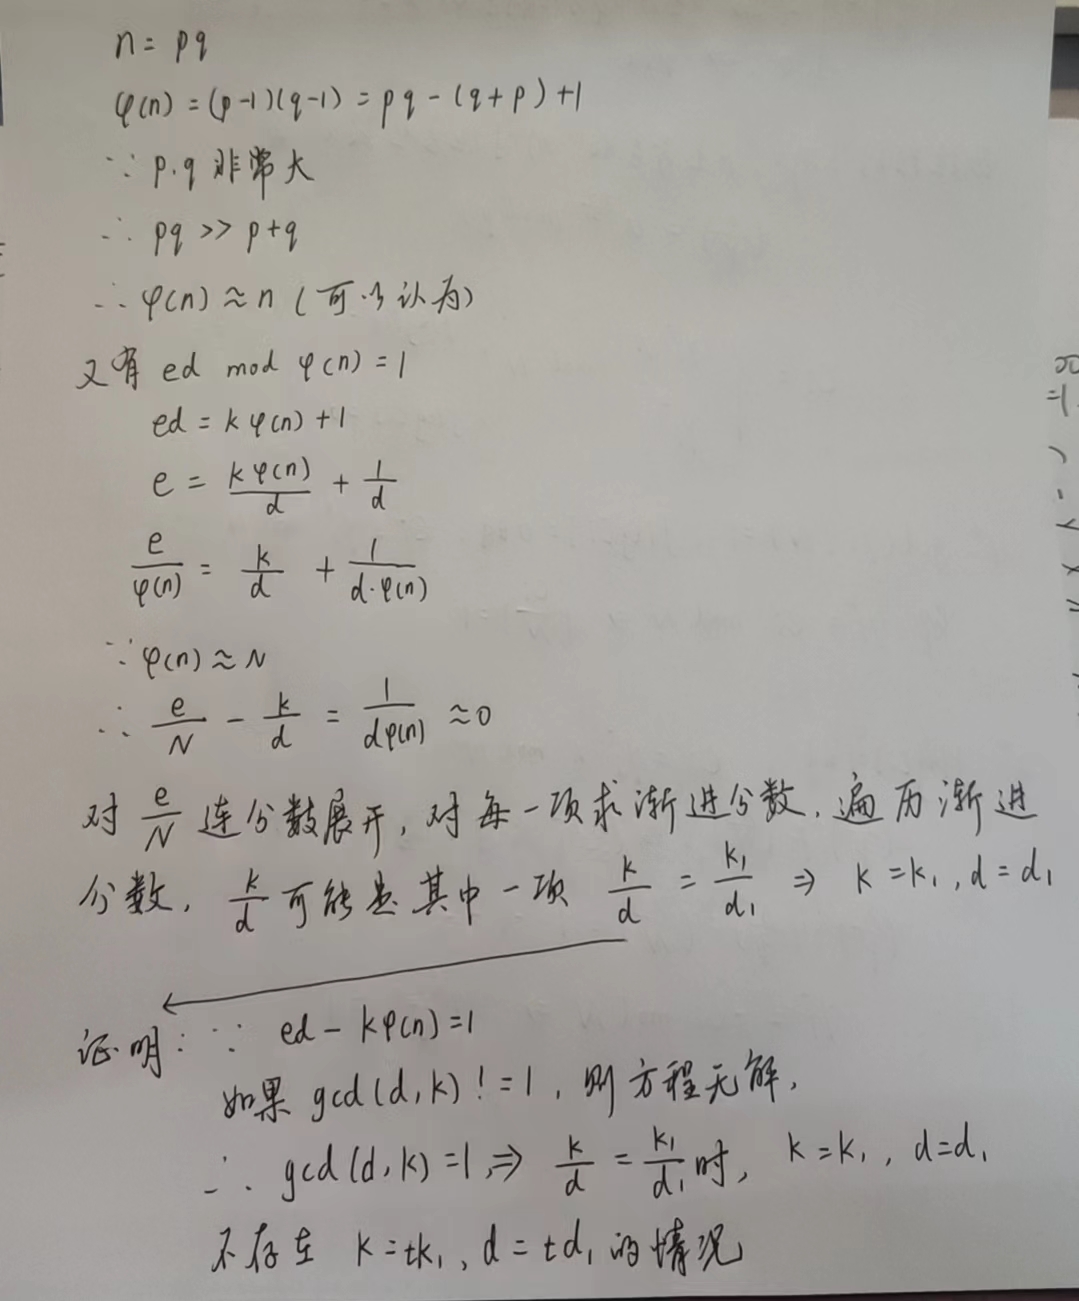 n = pq
φ(n) = (p-1)(q-1) = pq - (q+p) + 1
∵ p.q 非常大
∴ pq >> p+q
∴ φ(n) ≈ n (可以认为)
又有 ed mod φ(n) = 1
ed = kφ(n) + 1
e = kφ(n)/d + 1/d
e/φ(n) = k/d + 1/(d·φ(n))
∵ φ(n) ≈ N
∴ e/N - k/d = 1/(dφ(n)) ≈ 0
对 e/N 连分数展开, 对每一项求渐进分数. 遍历渐进
分数, k/d 可能是其中一项 k/d = k₁/d₁ ⇒ k = k₁, d = d₁
证明: ∵ ed - kφ(n) = 1
如果 gcd(d,k) != 1, 则方程无解,
∴ gcd(d,k) = 1, ⇒ k/d = k₁/d₁ 时, k = k₁, d = d₁
不存在 k = tk₁, d = td₁ 的情况